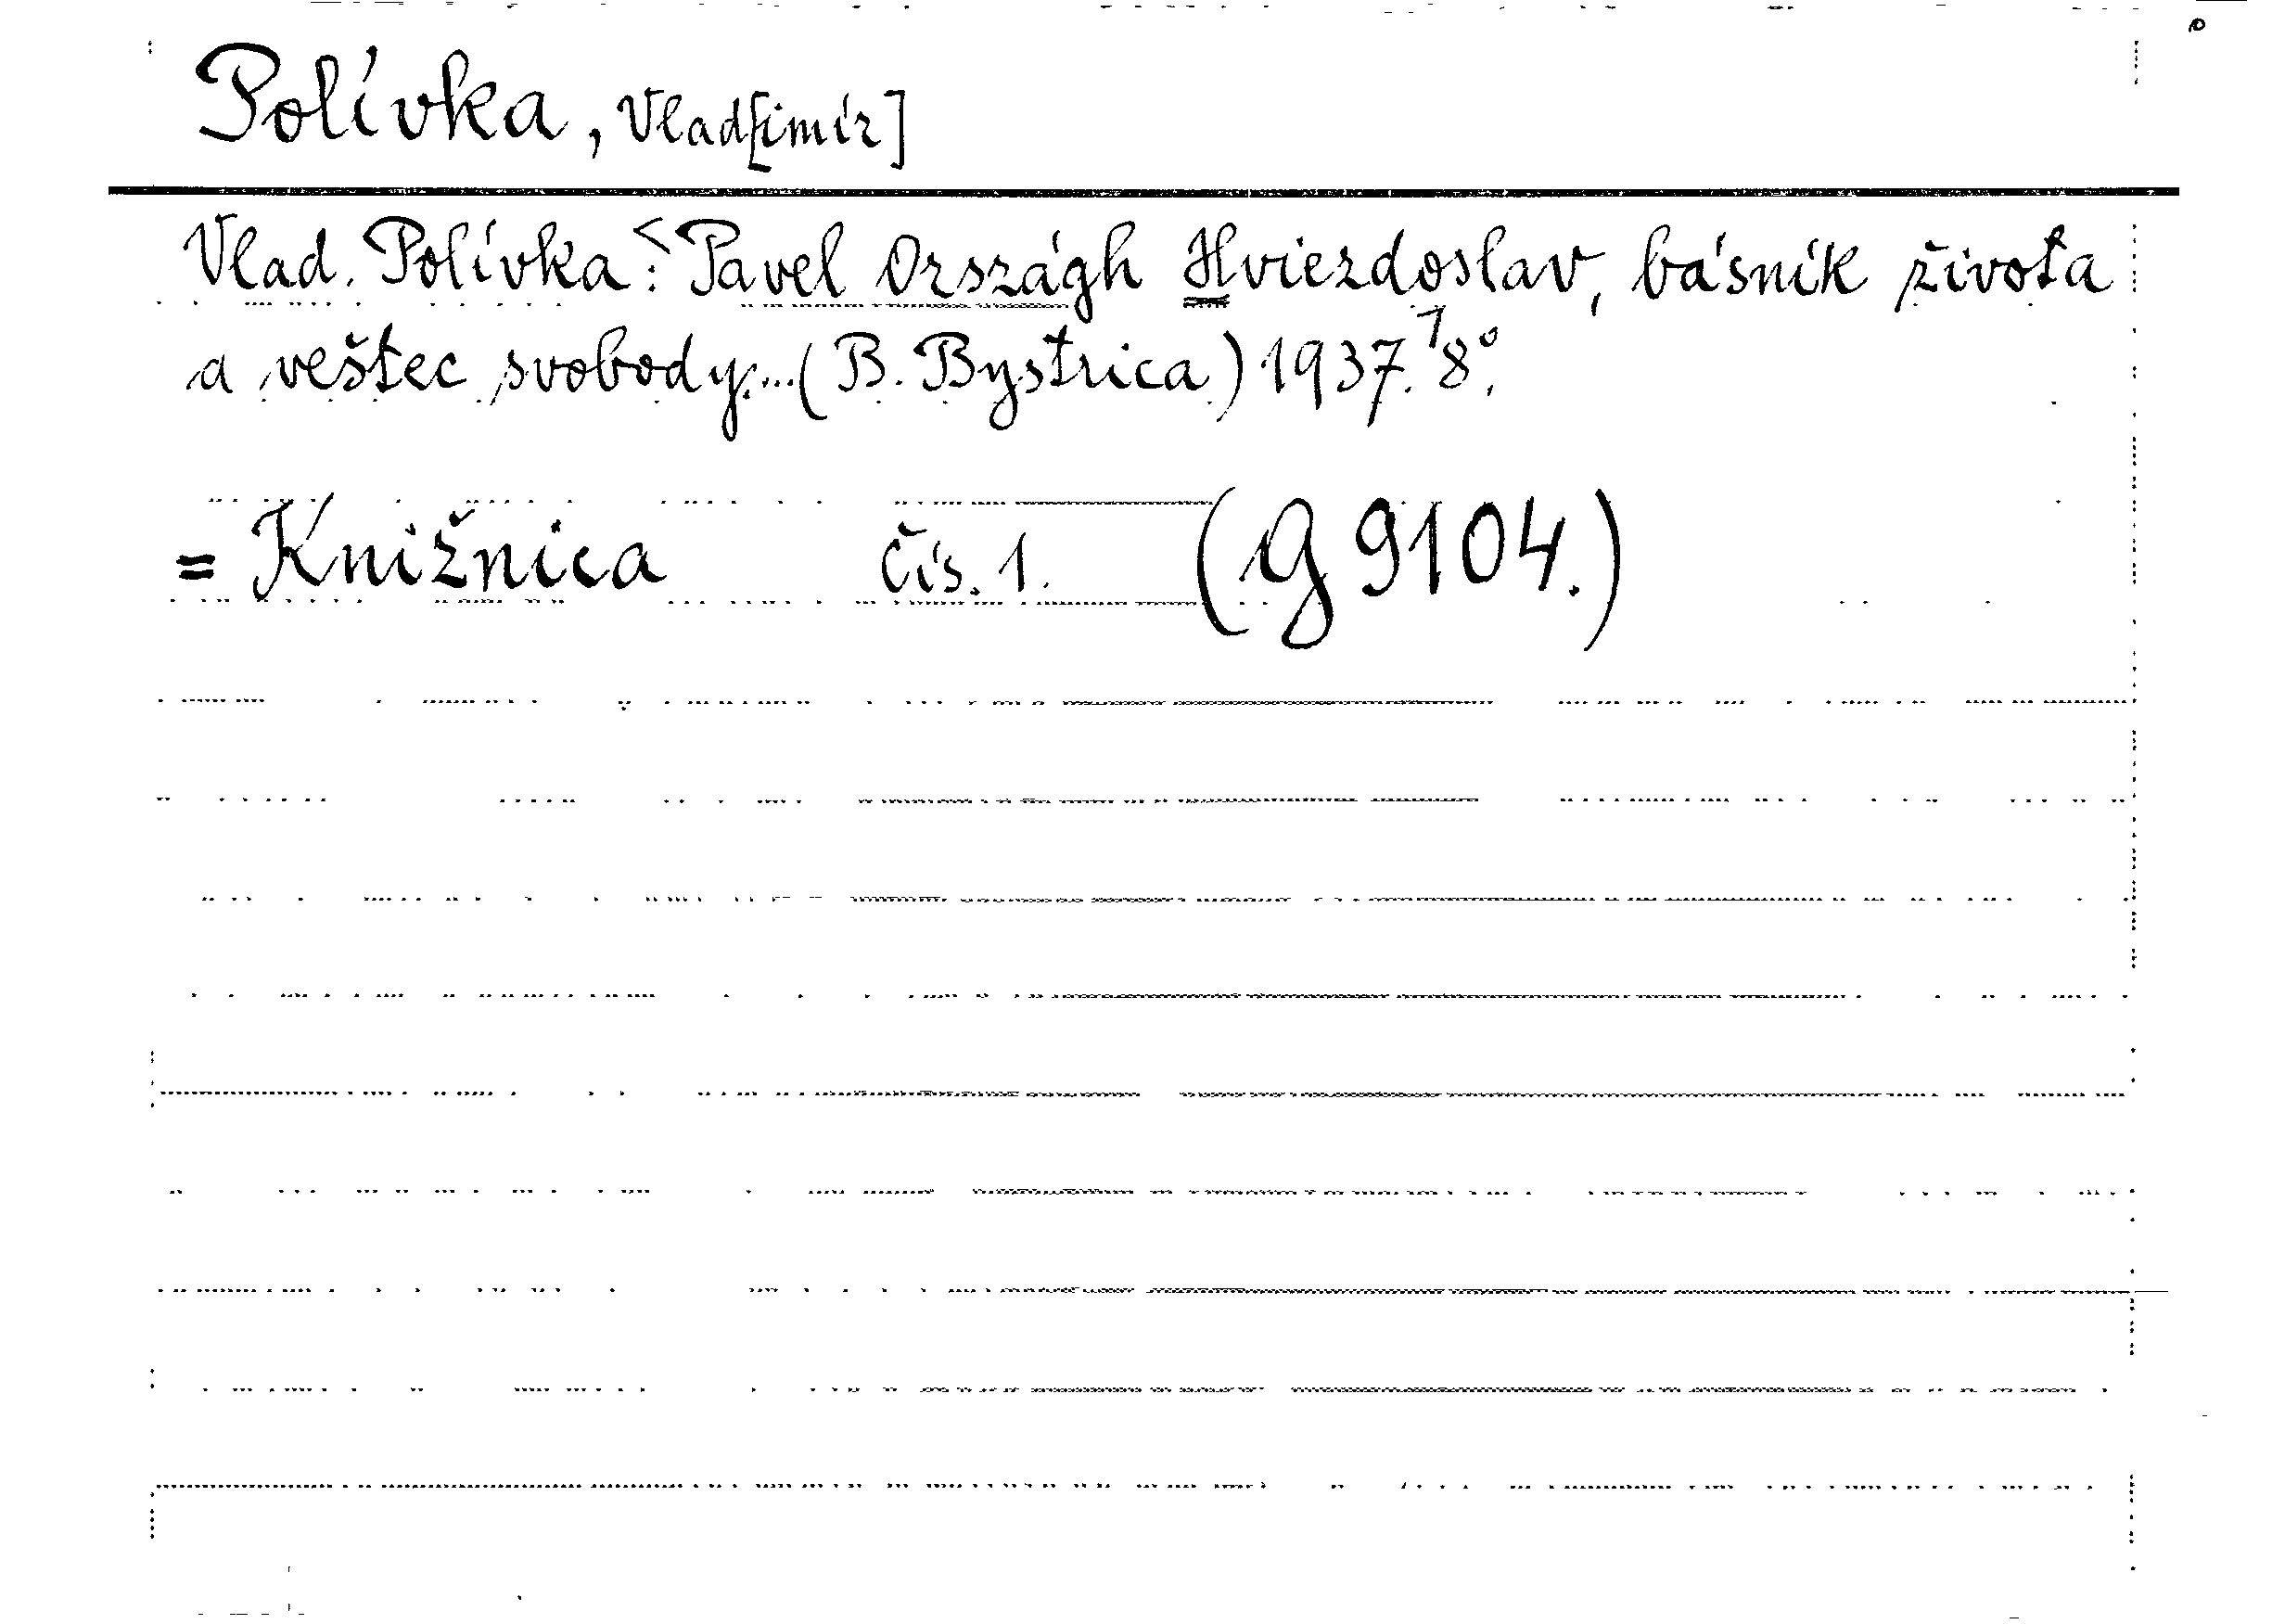 Polívka, Vlad[imír]
Vlad. Polívka: < Pavel Országh Hviezdoslav, básnik života
a veštec svobody... (B. Bystrica) 1937. 8°.
= Knižnica čís. 1. (G 9104.)